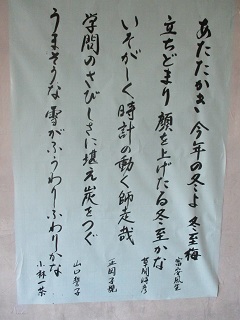 あたたかき今年の冬よ冬至梅
富安風生
立ちどまり顔を上げたる冬至かな
草間時彦
いそがしく時計の動く師走哉
正岡子規
学問のさびしさに堪え炭をつぐ
山口誓子
うまそうな雪がふうわりふわりかな
小林一茶